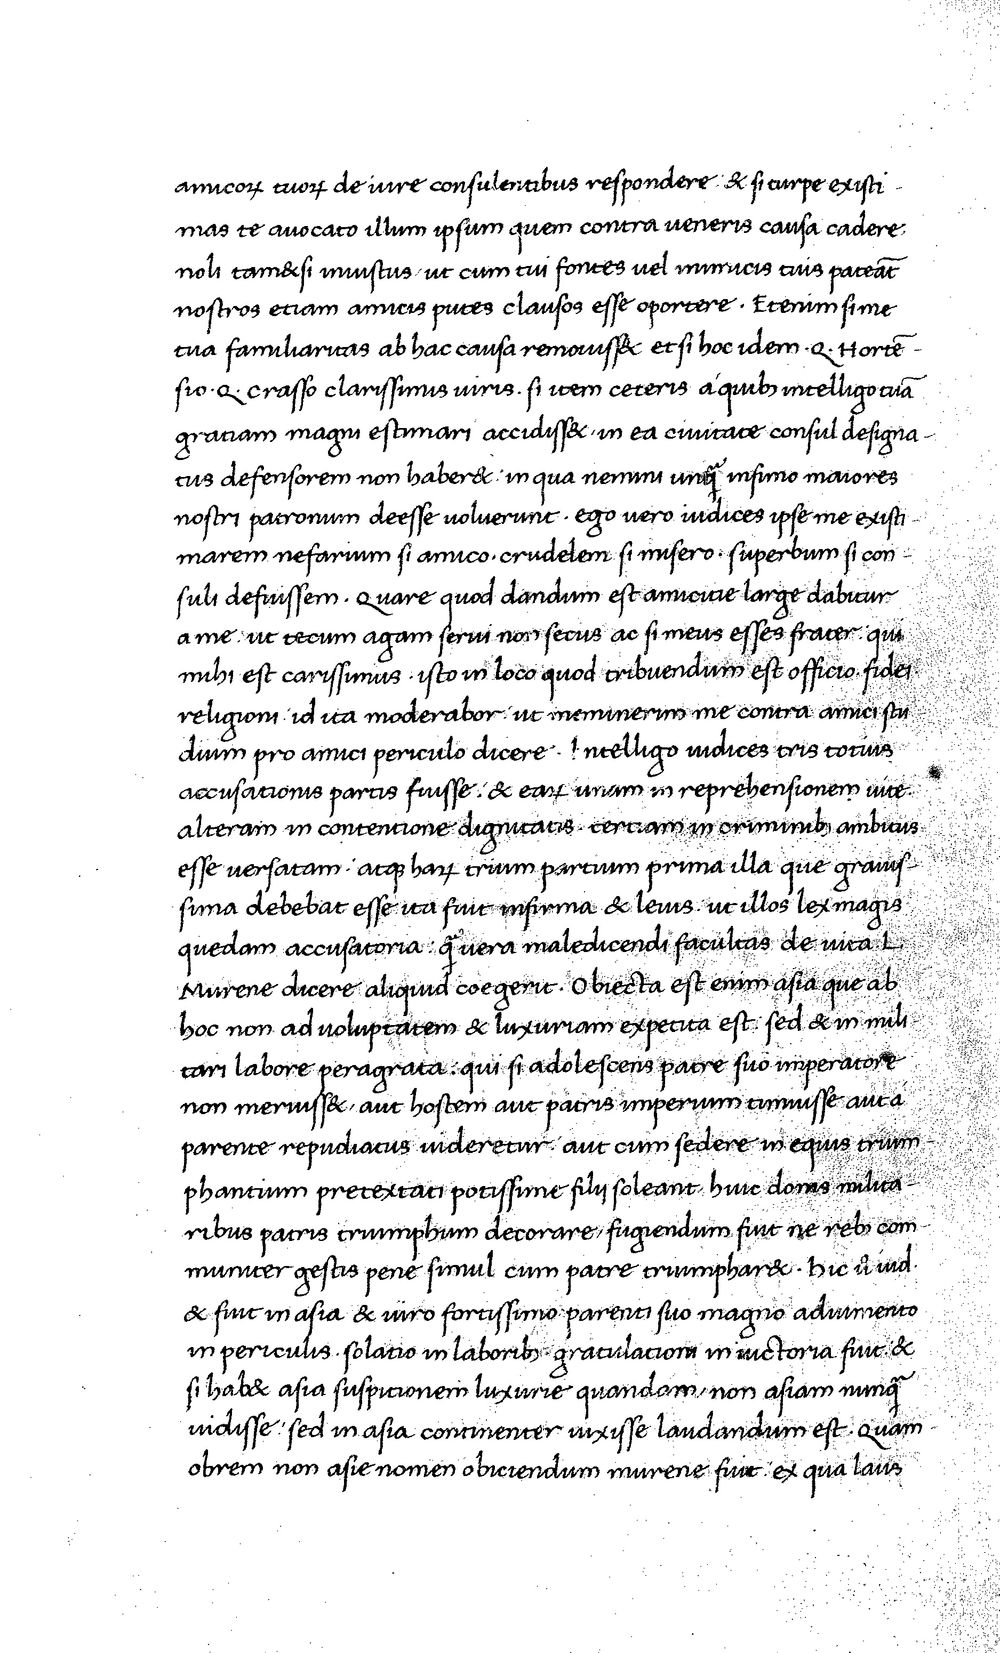 amicoꝝ tuoꝝ de iure consulentibus respondere · & si turpe existi-
mas te auocato illum ipsum quem contra ueneris causa cadere,
noli tam&si iniustus · ut cum tui fontes uel inimicis tuis pateāt
nostros etiam amicis putes clausos esse oportere · Etenim si me
tua familiaritas ab hac causa remouiss& et si hoc idem · Q · Hortē-
sio · Q · Crasso clarissimis uiris · si item ceteris a quibꝫ intelligo tuā
gratiam magni estimari accidiss& · in ea ciuitate consul designa-
tus defensorem non haber& · in qua nemini unqꝫ̄ infimo maiores
nostri patronum deesse uoluerunt · ego uero iudices ipse me existi-
marem nefarium si amico · crudelem si misero · superbum si con-
suli defuissem · Quare quod dandum est amicitie large dabitur
a me · ut tecum agam serui non secus ac si meus esses frater · qui
mihi est carissimus · isto in loco quod tribuendum est officio · fidei
religioni · id ita moderabor · ut meminerim me contra amici stu
dium pro amici periculo dicere · Intelligo iudices tris totius
accusationis partis fuisse · & eaꝝ unam in reprehensionem uite ·
alteram in contentione dignitatis · tertiam in criminibꝫ ambitus
esse uersatam · atqꝫ haꝝ trium partium prima illa que grauis-
sima debebat esse ita fuit infirma & leuis · ut illos lex magis
quedam accusatoria · q̄ uera maledicendi facultas de uita L ·
Murene dicere aliquid coegerit · Obiecta est enim asia que ab
hoc non ad uoluptatem & luxuriam expetita est · sed & in mili
tari labore peragrata · qui si adolescens patre suo imperatore
non meruiss& · aut hostem aut patris imperium timuisse aut a
parente repudiatus uideretur · aut cum sedere in equis trium-
phantium pretextati potissime filij soleant · huic donis milita-
ribus patris triumphum decorare, fugiendum fuit ne rebꝫ com-
muniter gestis pene simul cum patre triumphar& · Hic u̅ iud ·
& fuit in asia & uiro fortissimo parenti suo magno adiumento
in periculis · solatio in laboribꝫ · gratulationi in uictoria fuit · &
si hab& asia suspicionem luxurie quandam, non asiam nunqꝫ̄
uidisse · sed in asia continenter uixisse laudandum est · Quam-
obrem non asie nomen obiciendum murene fuit · ex qua laus